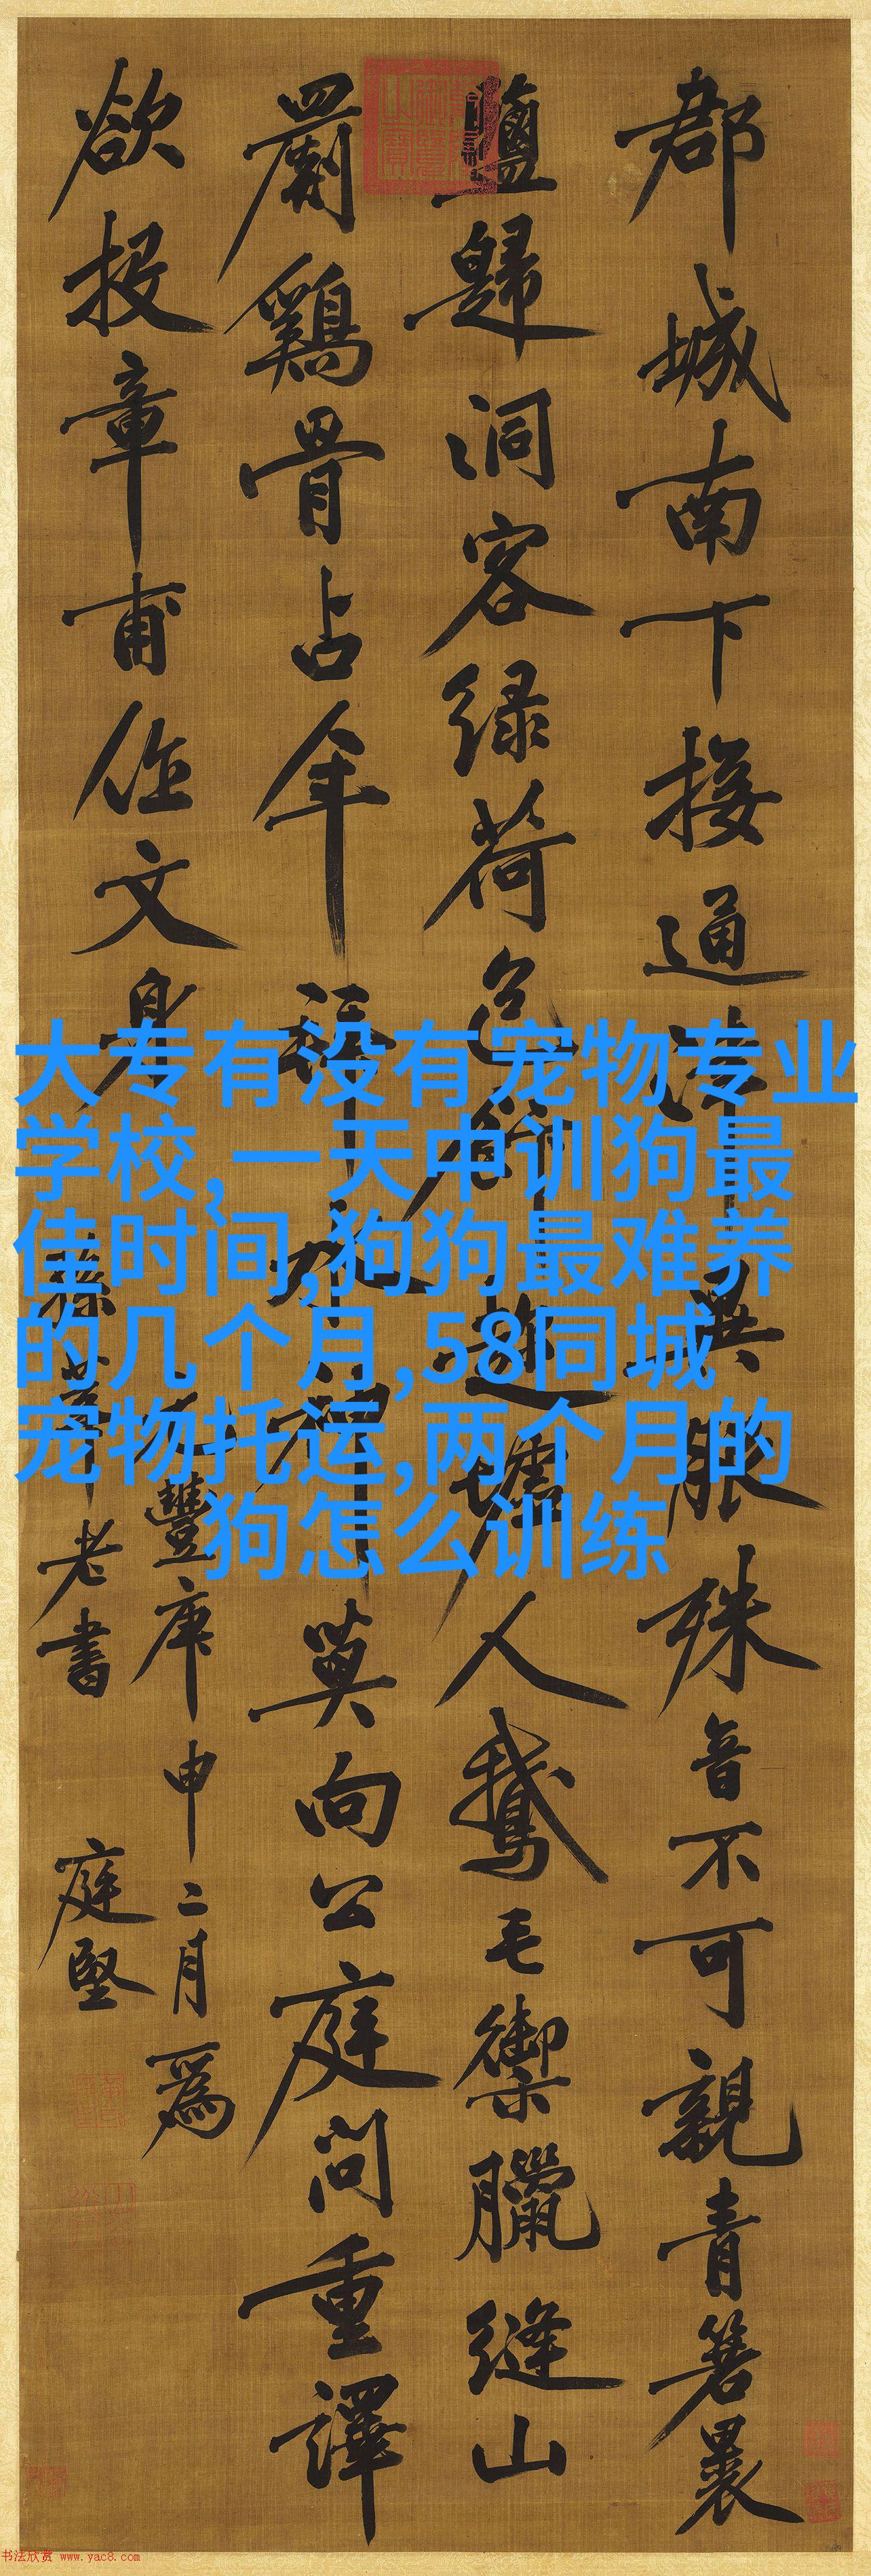 郡城南下接通津異服殊音不可親青箬裹
鹽歸洞客緑荷包飯趁墟人鵝毛禦臘縫山
罽鷄骨占年水神莫向公庭問重譯
欲投章甫作文身
元豐庚申二月為
孫莘老書
庭堅
大专有没有宠物专业
学校,一天中训狗最
佳时间,狗狗最难养
的几个月,58同城
宠物托运,两个月的
狗怎么训练
书法欣赏 www.yac8.com